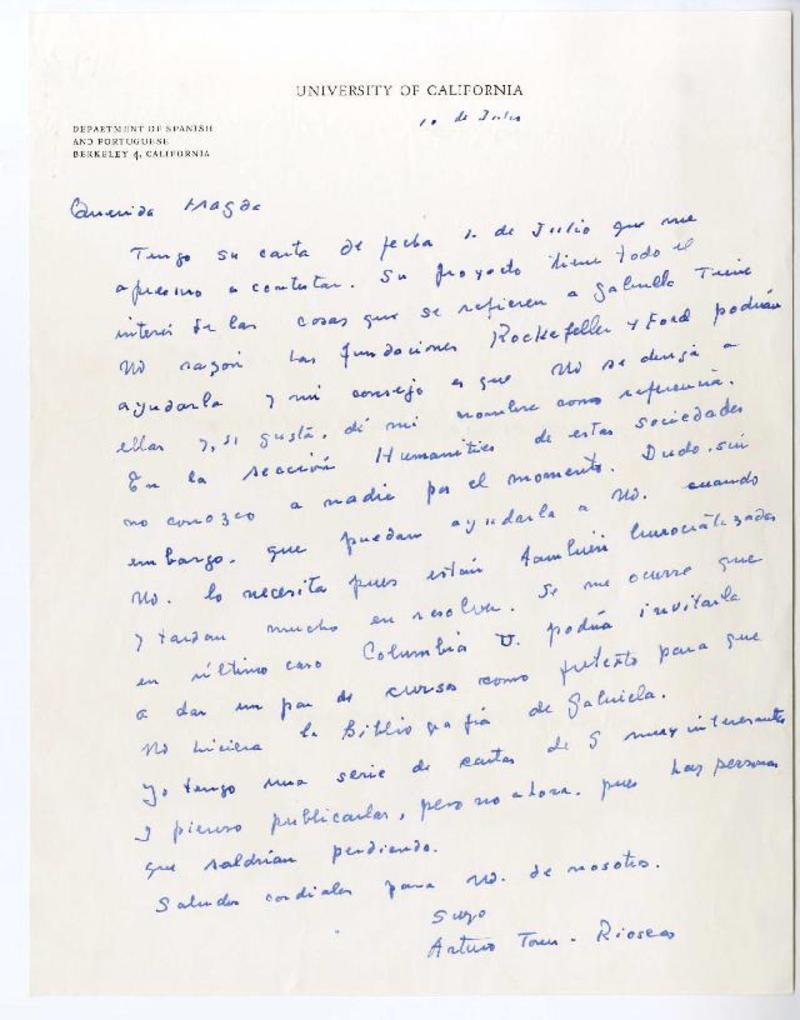 UNIVERSITY OF CALIFORNIA
10 de Julio
DEPARTMENT OF SPANISH
AND PORTUGUESE
BERKELEY 4, CALIFORNIA
Querida Magda
Tengo su carta de fecha 1. de Julio que me
apresuro a contestar. Su proyecto tiene todo el
interés de las cosas que se refieren a Gabriela Tiene
Ud razón Las fundaciones Rockefeller y Ford podrían
ayudarla y mi consejo es que Ud se dirija a
ellas y, si gusta, dé mi nombre como referencia.
En la sección Humanities de estas sociedades
no conozco a nadie por el momento. Dudo, sin
embargo, que puedan ayudarla a Ud. cuando
Ud. lo necesita pues están también burocratizadas
y tardan mucho en resolver. Se me ocurre que
en último caso Columbia U. podría invitarla
a dar un par de cursos como pretexto para que
Ud hiciera la Bibliografía de Gabriela.
Yo tengo una serie de cartas de G muy interesantes
y pienso publicarlas, pero no ahora, pues hay personas
que saldrían perdiendo.
Saludos cordiales para Ud. de nosotros.
Suyo
Arturo Torres-Rioseco